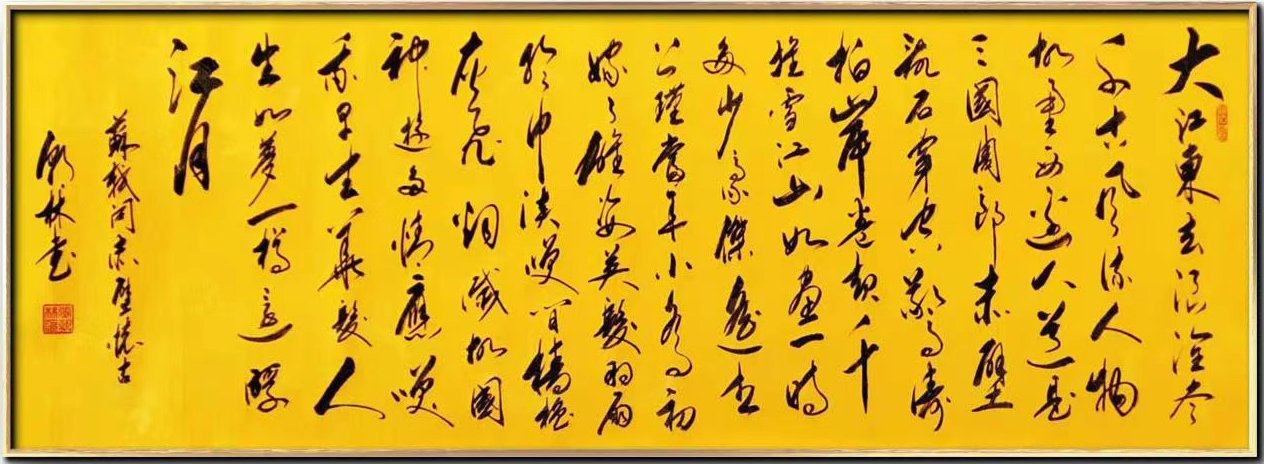 大江東去浪淘尽
千古风流人物
故垒西边人道是
三國周郎赤壁
乱石穿空驚涛
拍岸卷起千
堆雪江山如画一時
多少豪傑遥想
公瑾當年小喬初
嫁了雄姿英髮羽扇
纶巾談笑间樯櫓
灰飛烟滅故國
神遊多情應笑
我早生華髮人
生如夢一樽還酹
江月
蘇軾词赤壁懷古
林书